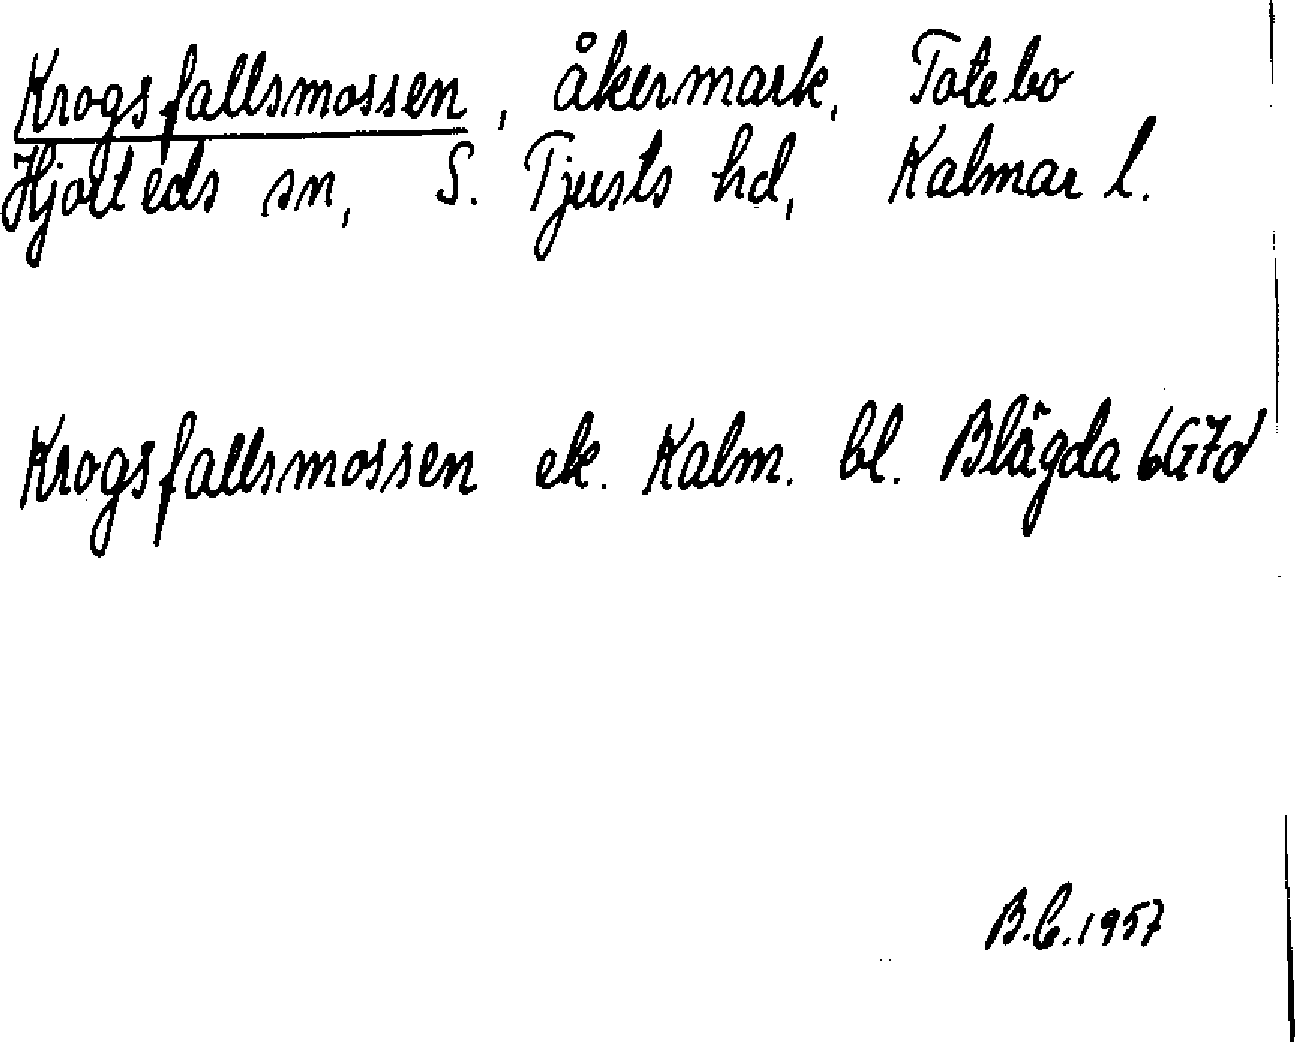 Krogsfallsmossen, åkermark, Totebo
Hjorteds sn, S. Tjusts hd, Kalmar l.
Krogsfallsmossen ek. Kalm. bl. Blägda 6G7d
B.C. 1957